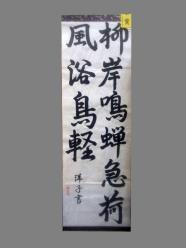 柳岸鳴蝉急荷
風浴鳥軽
洋子書